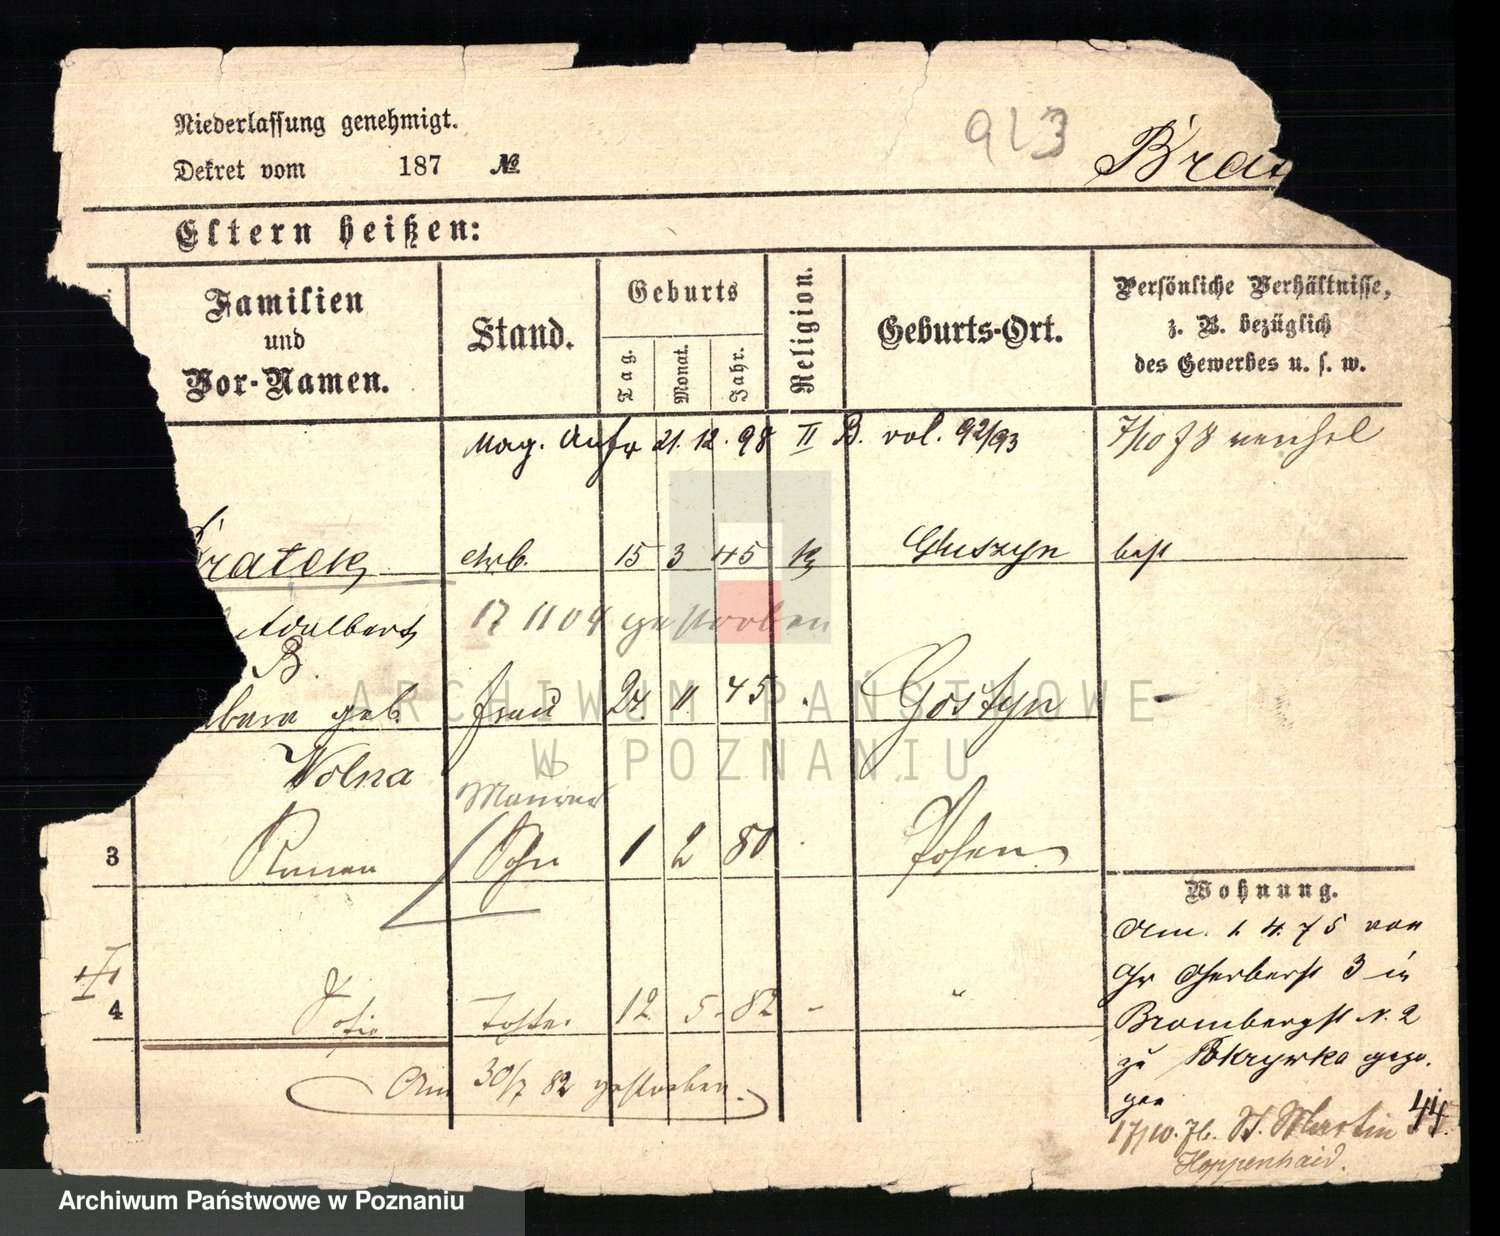 Niederlassung genehmigt.
913
Dekret vom 187 №
Brat
Eltern heißen:
Familien
und
Vor-Namen.
Stand.
Geburts
Tag.
Monat.
Jahr.
Religion.
Geburts-Ort.
Persönliche Verhältnisse,
z. B. bezüglich
des Gewerbes u. s. w.
Mag. Anfr 21. 12. 98 II B. vol. 92/93
ratek Arb. 15 3 45 k Gluszyn
Adalbert 17 11 04 gestorben
B.
bara geb. Frau 24. 11 45 Gostyn -
Wolna
Maurer
3 Roman Sohn 1 2 80 Posen
Wohnung.
Am. 1. 4. 75 von
Gr Gerberst 3 in
Brombergst N. 2
zu Pokrywka gezo.
gen
4 Sofie Tochter 12. 5. 82 - "
Am 30/7 82 gestorben.
17/10. 76. St. Martin 44.
Hoppenhaid.
Archiwum Państwowe w Poznaniu
ARCHIWUM PAŃSTWOWE
W POZNANIU